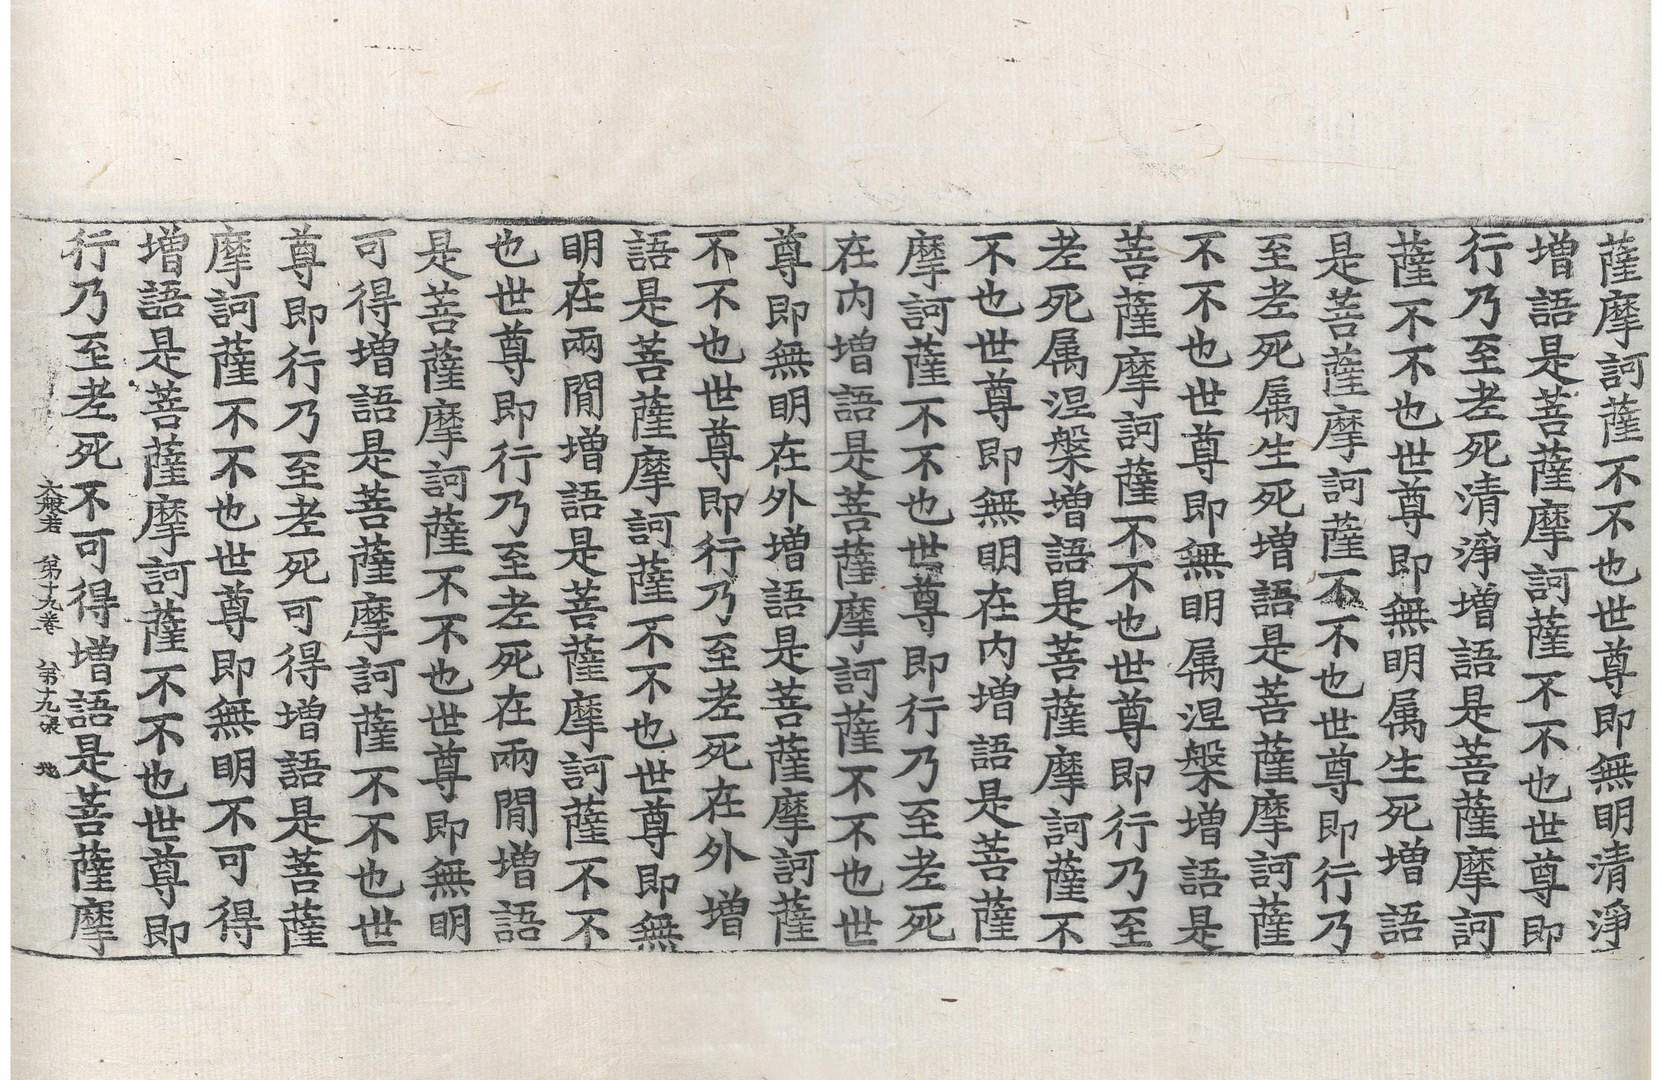 薩摩訶薩不不也世尊即無眀清淨
增語是菩薩摩訶薩不不也世尊即
行乃至老死清淨增語是菩薩摩訶
薩不不也世尊即無眀属生死增語
是菩薩摩訶薩不不也世尊即行乃
至老死属生死增語是菩薩摩訶薩
不不也世尊即無眀属涅槃增語是
菩薩摩訶薩不不也世尊即行乃至
老死属涅槃增語是菩薩摩訶薩不
不也世尊即無眀在内增語是菩薩
摩訶薩不不也世尊即行乃至老死
在内增語是菩薩摩訶薩不不也世
尊即無眀在外增語是菩薩摩訶薩
不不也世尊即行乃至老死在外增
語是菩薩摩訶薩不不也世尊即無
眀在兩閒增語是菩薩摩訶薩不不
也世尊即行乃至老死在兩閒增語
是菩薩摩訶薩不不也世尊即無眀
可得增語是菩薩摩訶薩不不也世
尊即行乃至老死可得增語是菩薩
摩訶薩不不也世尊即無眀不可得
增語是菩薩摩訶薩不不也世尊即
行乃至老死不可得增語是菩薩摩
大般若 第十九卷 第十九張 地